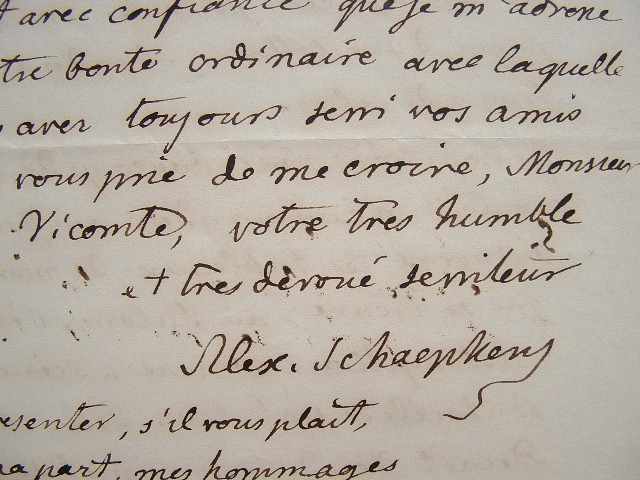 avec confiance que je m'adresse
tre bonté ordinaire avec laquelle
avez toujours servi vos amis
vous prie de me croire, Monsieur
Vicomte, votre tres humble
et tres dévoué serviteur
Alex. Schaepkens
résenter, s'il vous plaît,
ma part, mes hommages